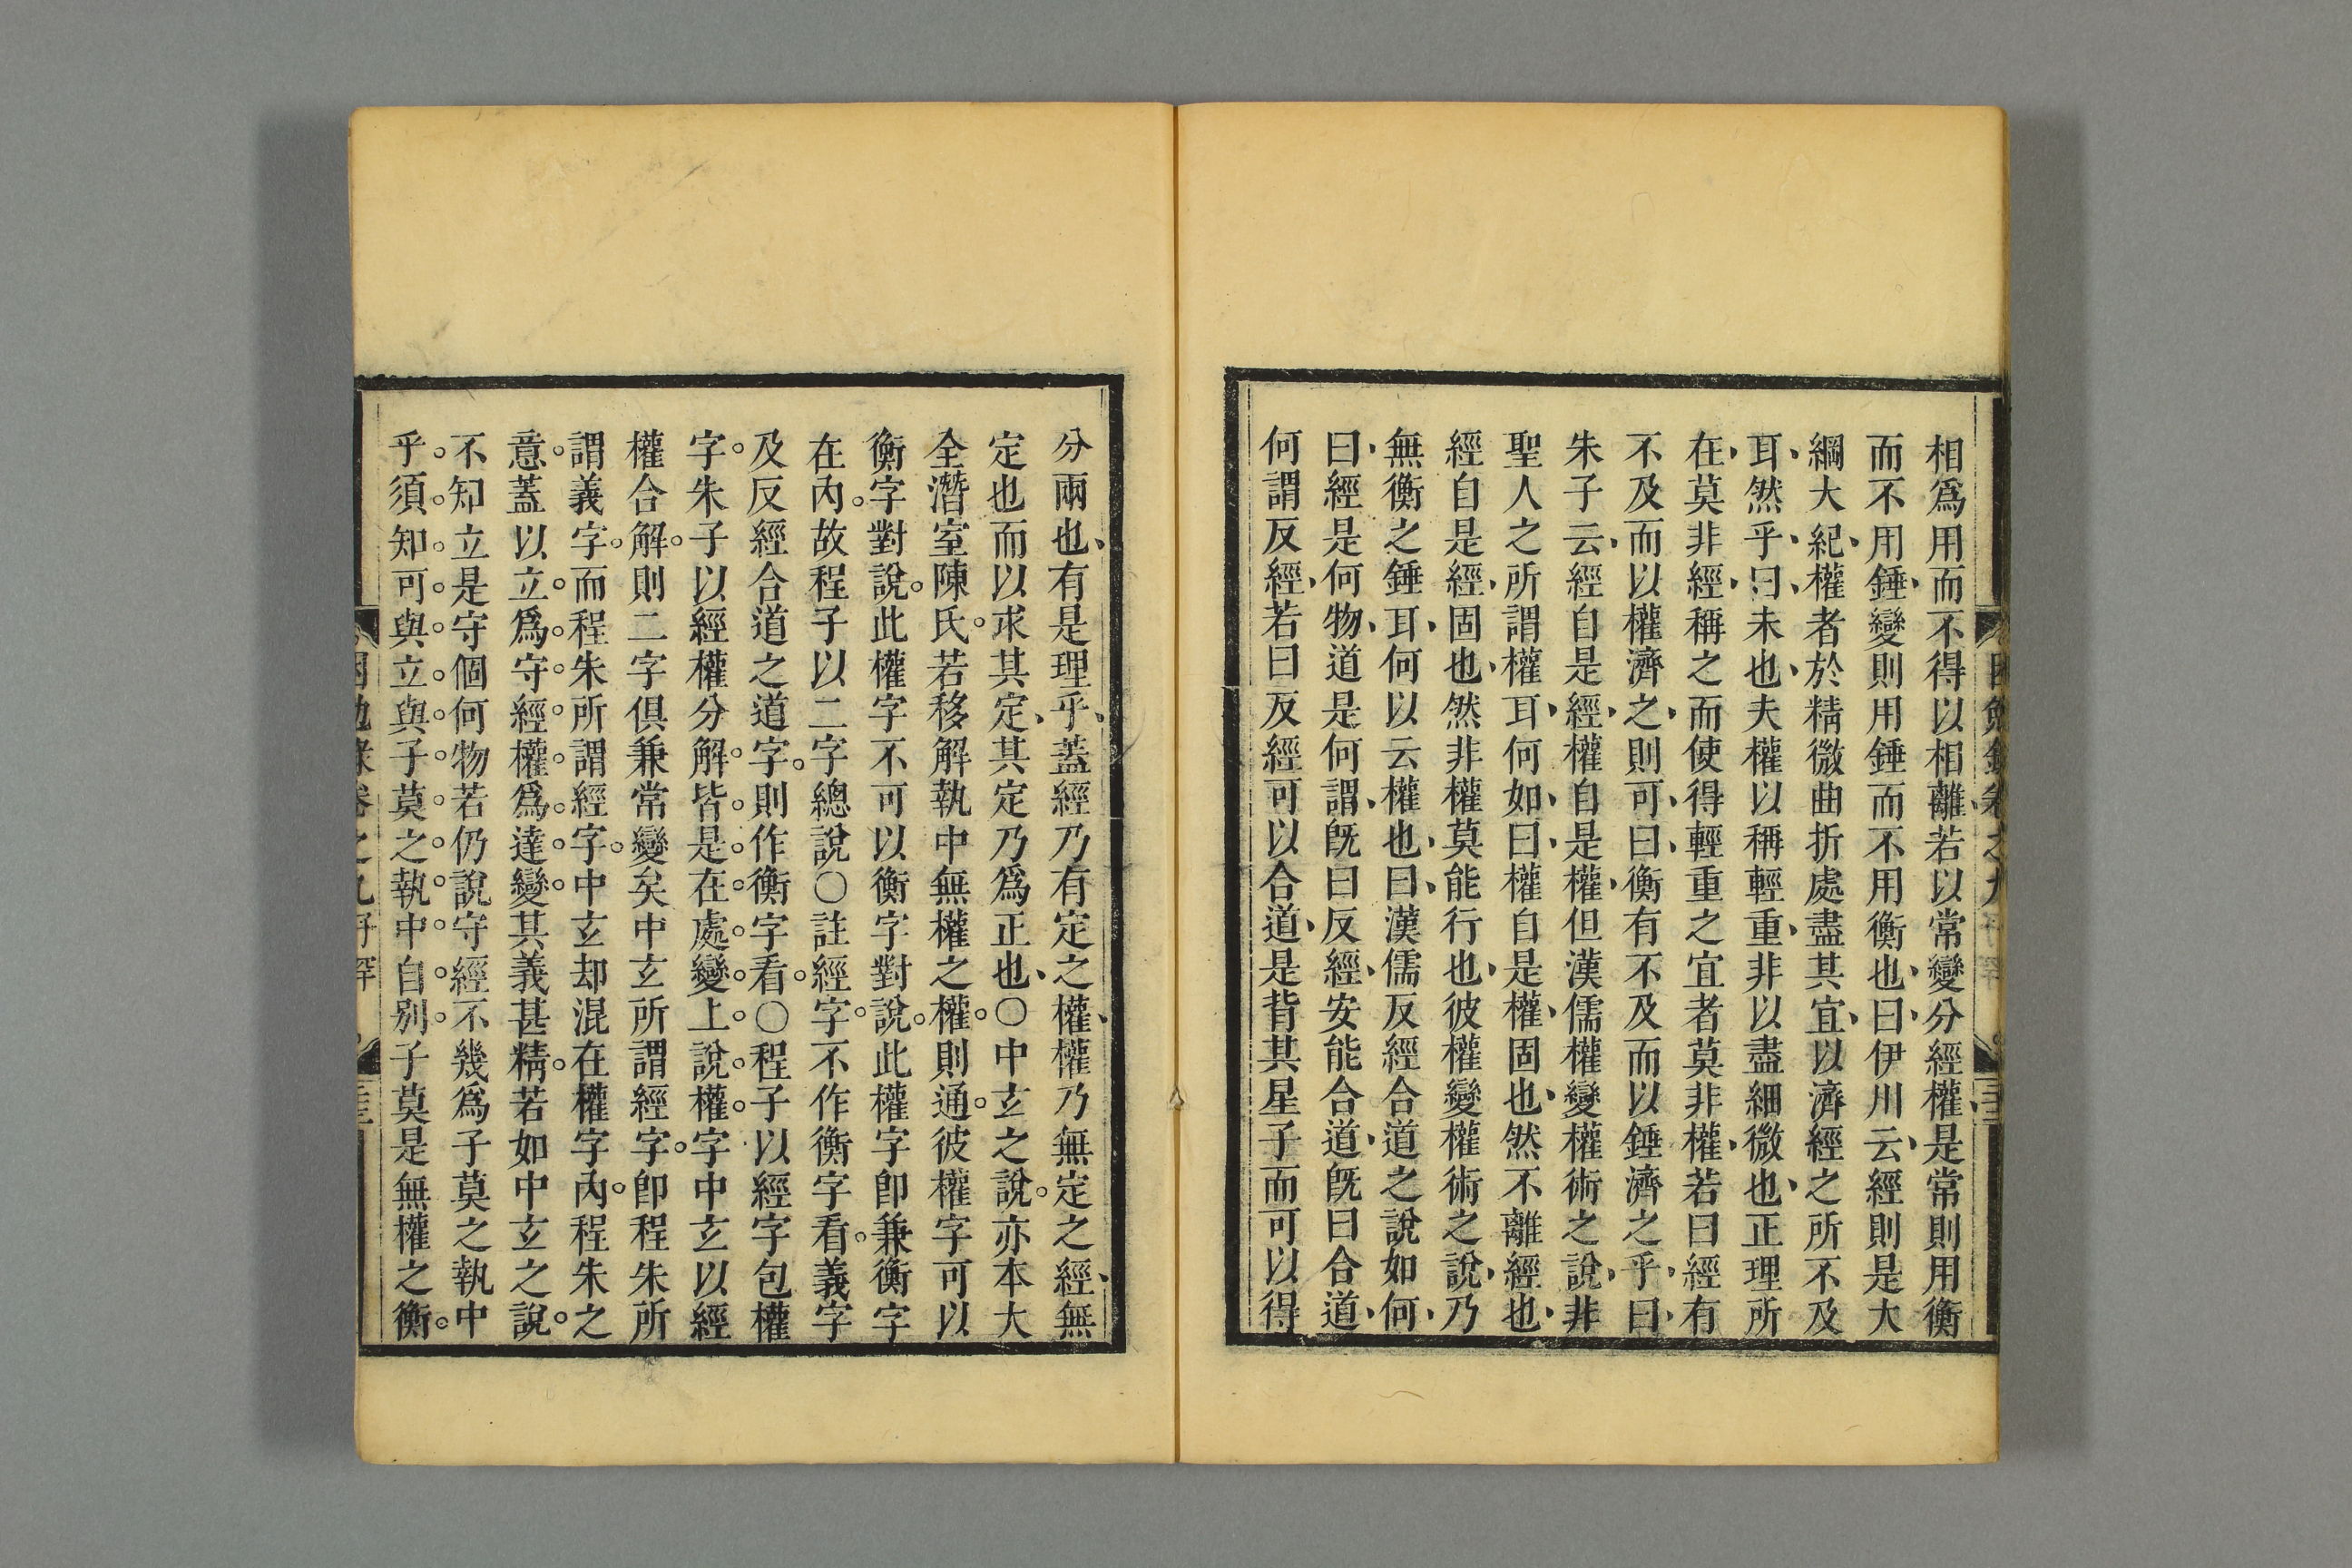 相爲用而不得以相離若以常變分經權是常則用衡
而不用錘變則用錘而不用衡也曰伊川云經則是大
綱大紀權者於精微曲折處盡其宜以濟經之所不及
耳然乎曰未也夫權以稱輕重非以盡細微也正理所
在莫非經稱之而使得輕重之宜者莫非權若曰經有
不及而以權濟之則可曰衡有不及而以錘濟之乎曰
朱子云經自是經權自是權但漢儒權變權術之說非
聖人之所謂權耳何如曰權自是權固也然不離經也
經自是經固也然非權莫能行也彼權變權術之說乃
無衡之錘耳何以云權也曰漢儒反經合道之說如何
曰經是何物道是何謂既曰反經安能合道既曰合道
何謂反經若曰反經可以合道是背其星子而可以得
分兩也有是理乎蓋經乃有定之權權乃無定之經無
定也而以求其定其定乃爲正也○中玄之說亦本大
全潛室陳氏若移解執中無權之權則通彼權字可以
衡字對說此權字不可以衡字對說此權字卽兼衡字
在內故程子以二字總說○註經字不作衡字看義字
及反經合道之道字則作衡字看○程子以經字包權
字朱子以經權分解皆是在處變上說權字中玄以經
權合解則二字俱兼常變矣中玄所謂經字卽程朱所
謂義字而程朱所謂經字中玄却混在權字內程朱之
意蓋以立爲守經權爲達變其義甚精若如中玄之說
不知立是守個何物若仍說守經不幾爲子莫之執中
乎須知可與立與子莫之執中自別子莫是無權之衡